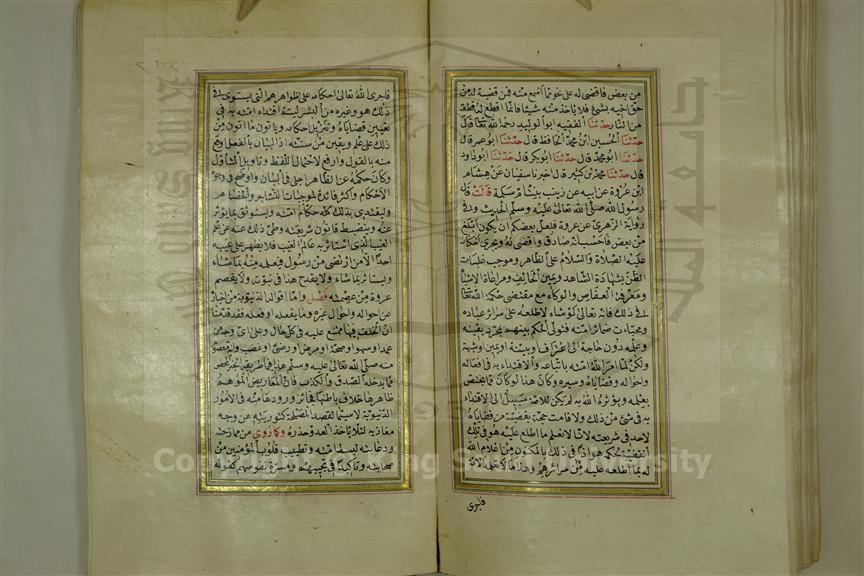 من بعض فاقضى له على نحو مما اسمع منه فمن قضيت له من
حق اخيه بشئ فلا يأخذ منه شيئا فانما اقطع له قطعة
من النار حدثنا الفقيه ابو الوليد رحمه الله تعالى قال
حدثنا الحسين ابن محمد الحافظ قال حدثنا ابو عمر قال
حدثنا ابو محمد قال حدثنا ابو بكر قال حدثنا ابو داود
قال حدثنا محمد بن كثير قال اخبرنا سفيان عن هشام
ابن عروة عن ابيه عن زينب بنت ام سلمة قالت قال
رسول الله صلى الله تعالى عليه وسلم الحديث وفى
رواية الزهرى عن عروة فلعل بعضكم ان يكون ابلغ
من بعض فاحسب انه صادق واقضى له ويجرى احكامه
عليه الصلاة والسلام على الظاهر وموجب غلبات
الظن بشهادة الشاهد ويمين الحالف ومراعاة الاشبه
ومعرفة العفاص والوكاء مع مقتضى حكمة الله تعالى
فى ذلك فانه تعالى لو شاء لاطلعه على سرائر عباده
ومخبئات ضمائر امته فتولى الحكم بينهم بمجرد يقينه
وعلمه دون حاجة الى اعتراف او بينة او يمين او شبهة
ولكن لما امر الله امته باتباعه والاقتداء به فى افعاله
واحواله وقضاياه وسيره وكان هذا لو كان مما يختص
بعلمه ويؤثره الله به لم يكن للامة سبيل الى الاقتداء
به فى شئ من ذلك ولا قامت حجة بقضية من قضاياه
لاحد فى شريعته لانا لا نعلم ما اطلع عليه هو فى تلك
القضية بحكمه هو اذا فى ذلك بالمكنون من اعلام الله
له بما اطلعه عليه من سرائرهم وهذا ما لا تعلمه الامة
فاجرى
فاجرى الله تعالى احكامه على ظواهرهم التى يستوى فى
ذلك هو وغيره من البشر ليتم اقتداء امته به فى
تعيين قضاياه وتنزيل احكامه ويأتون ما اتوا من
ذلك على علم ويقين من سنته اذ البيان بالفعل اوقع
منه بالقول وارفع لاحتمال اللفظ وتأويل المتأول
وكان حكمه على الظاهر اجلى فى البيان واوضح فى وجوه
الاحكام واكثر فائدة لموجبات التشاجر والخصام
وليقتدى بذلك كله حكام امته ويستوثق بما يؤثر
عنه وينضبط قانون شريعته وطى ذلك عنه من علم
الغيب الذى استأثر به عالم الغيب فلا يظهر على غيبه
احدا الا من ارتضى من رسول فيعلمه منه بما شاء
ويستأثر بما شاء ولا يقدح هذا فى نبوته ولا يفصم
عروة من عصمته فصل واما اقواله الدنيوية من اخباره
عن احواله واحوال غيره وما يفعله او فعله فقد قدمنا
ان الخلف فيها ممتنع عليه فى كل حال وعلى اى وجه من
عمد او سهو او صحة او مرض او رضى او غضب وانه معصوم
منه صلى الله تعالى عليه وسلم هذا فيما طريقه الخبر المحض
مما يدخله الصدق والكذب فاما المعاريض الموهم
ظاهرها خلاف باطنها فجائز ورودها منه فى الامور
الدنيوية لا سيما لقصد المصلحة كتوريته عن وجه
مغازيه لئلا يأخذ العدو حذره وكما روى من ممازحته
ودعابته لبسط امته وتطييب قلوب المؤمنين من
صحابته وتأكيدا فى تحببهم ومسرة نفوسهم كقوله